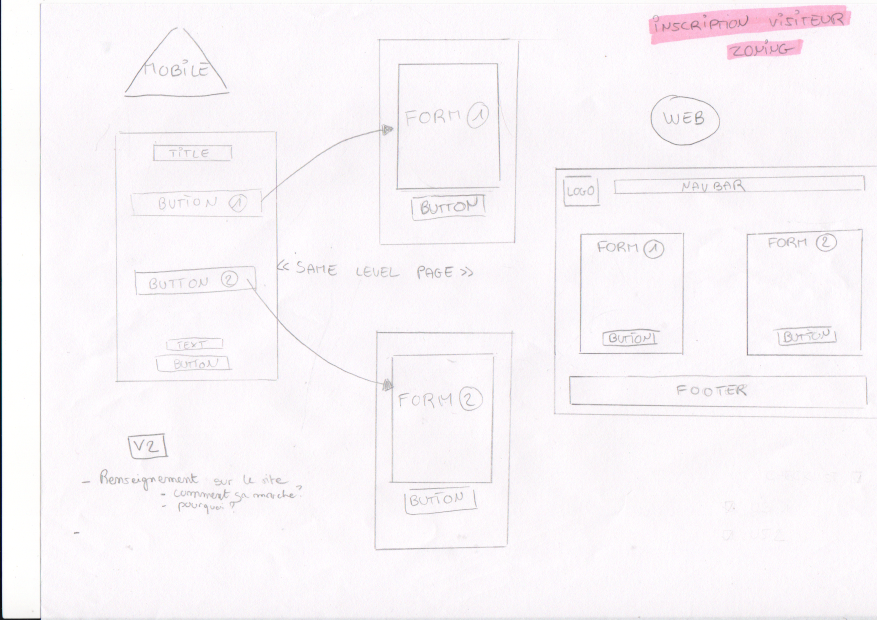 INSCRIPTION VISITEUR
ZONING
MOBILE
TITLE
BUTTON 1
BUTTON 2
TEXT
BUTTON
FORM 1
BUTTON
<< SAME LEVEL PAGE >>
FORM 2
BUTTON
WEB
LOGO
NAVBAR
FORM 1
BUTTON
FORM 2
BUTTON
FOOTER
V2
- Renseignement sur le site
- comment ça marche?
- pourquoi?
-